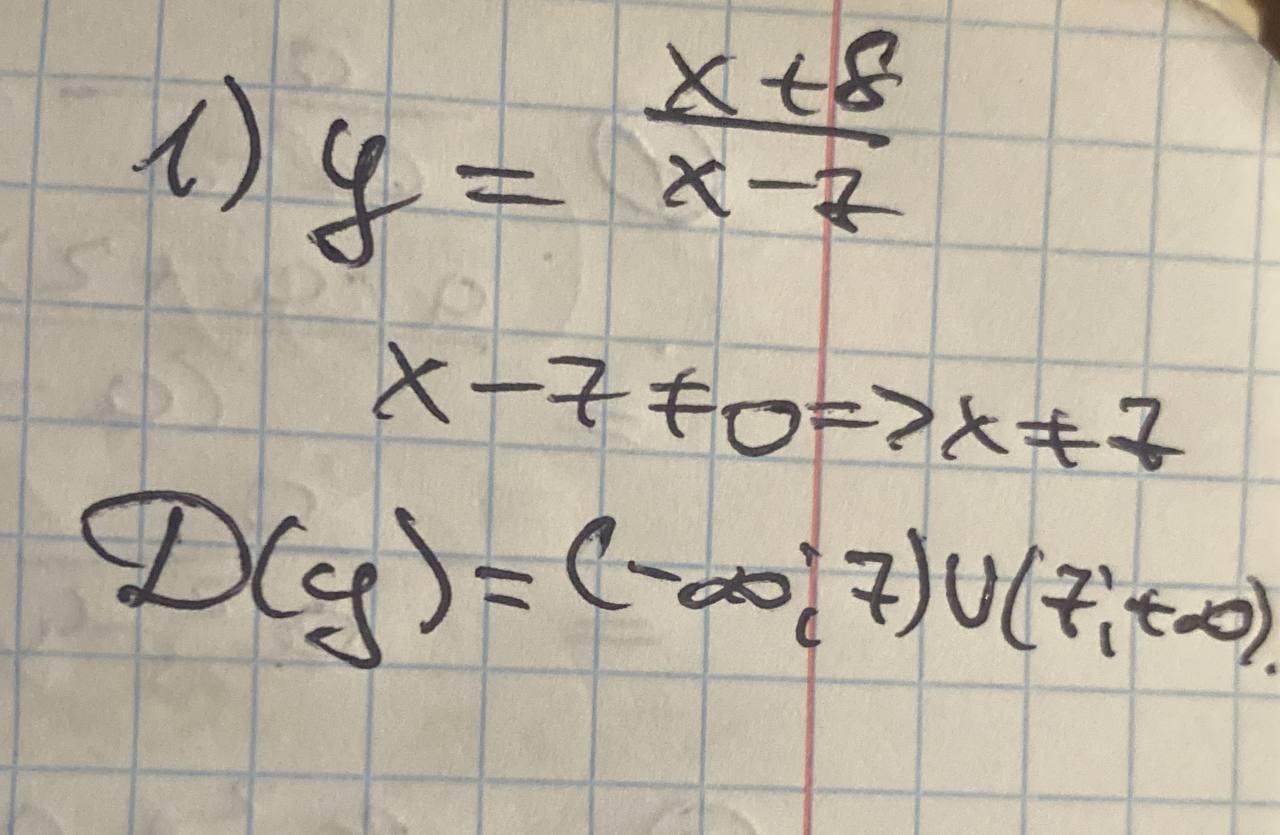 1) y = \frac{x+8}{x-7}
x - 7 ≠ 0 => x ≠ 7
D(y) = (-∞; 7) ∪ (7; +∞).